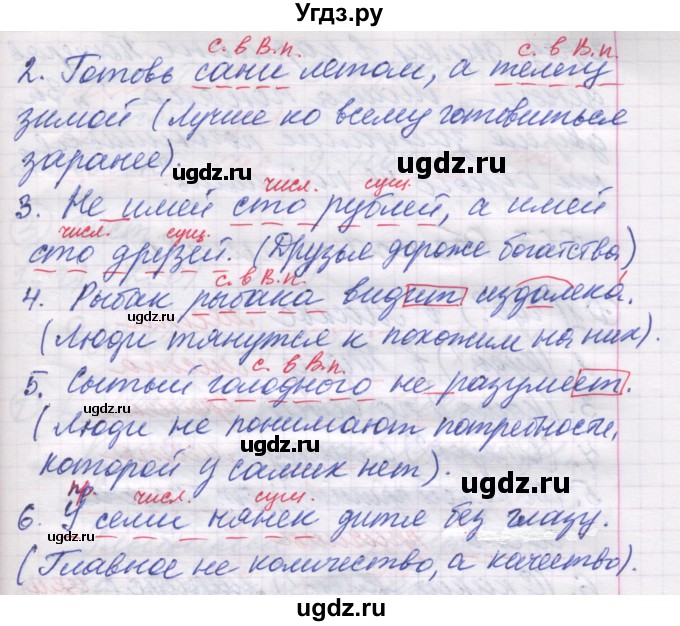 Угдз.ру
с. в В.п. с. в В.п.
2. Готовь сани летом, а телегу
зимой (Лучше ко всему готовиться
заранее).
ugdz.ru
ugdz.ru
числ. сущ.
3. Не имей сто рублей, а имей
числ. сущ.
сто друзей. (Друзья дороже богатства)
с. в В.п.
ugdz.ru
4. Рыбак рыбака видит издалека.
(Люди тянутся к похожим на них).
с. в В.п.
5. Сытый голодного не разумеет.
ugdz.ru
ugdz.ru
(Люди не понимают потребности,
которой у самих нет).
ugdz.ru
пр. числ. сущ.
6. У семи нянек дитя без глазу.
ugdz.ru
(Главное не количество, а качество).
ugdz.ru
ugdz.ru